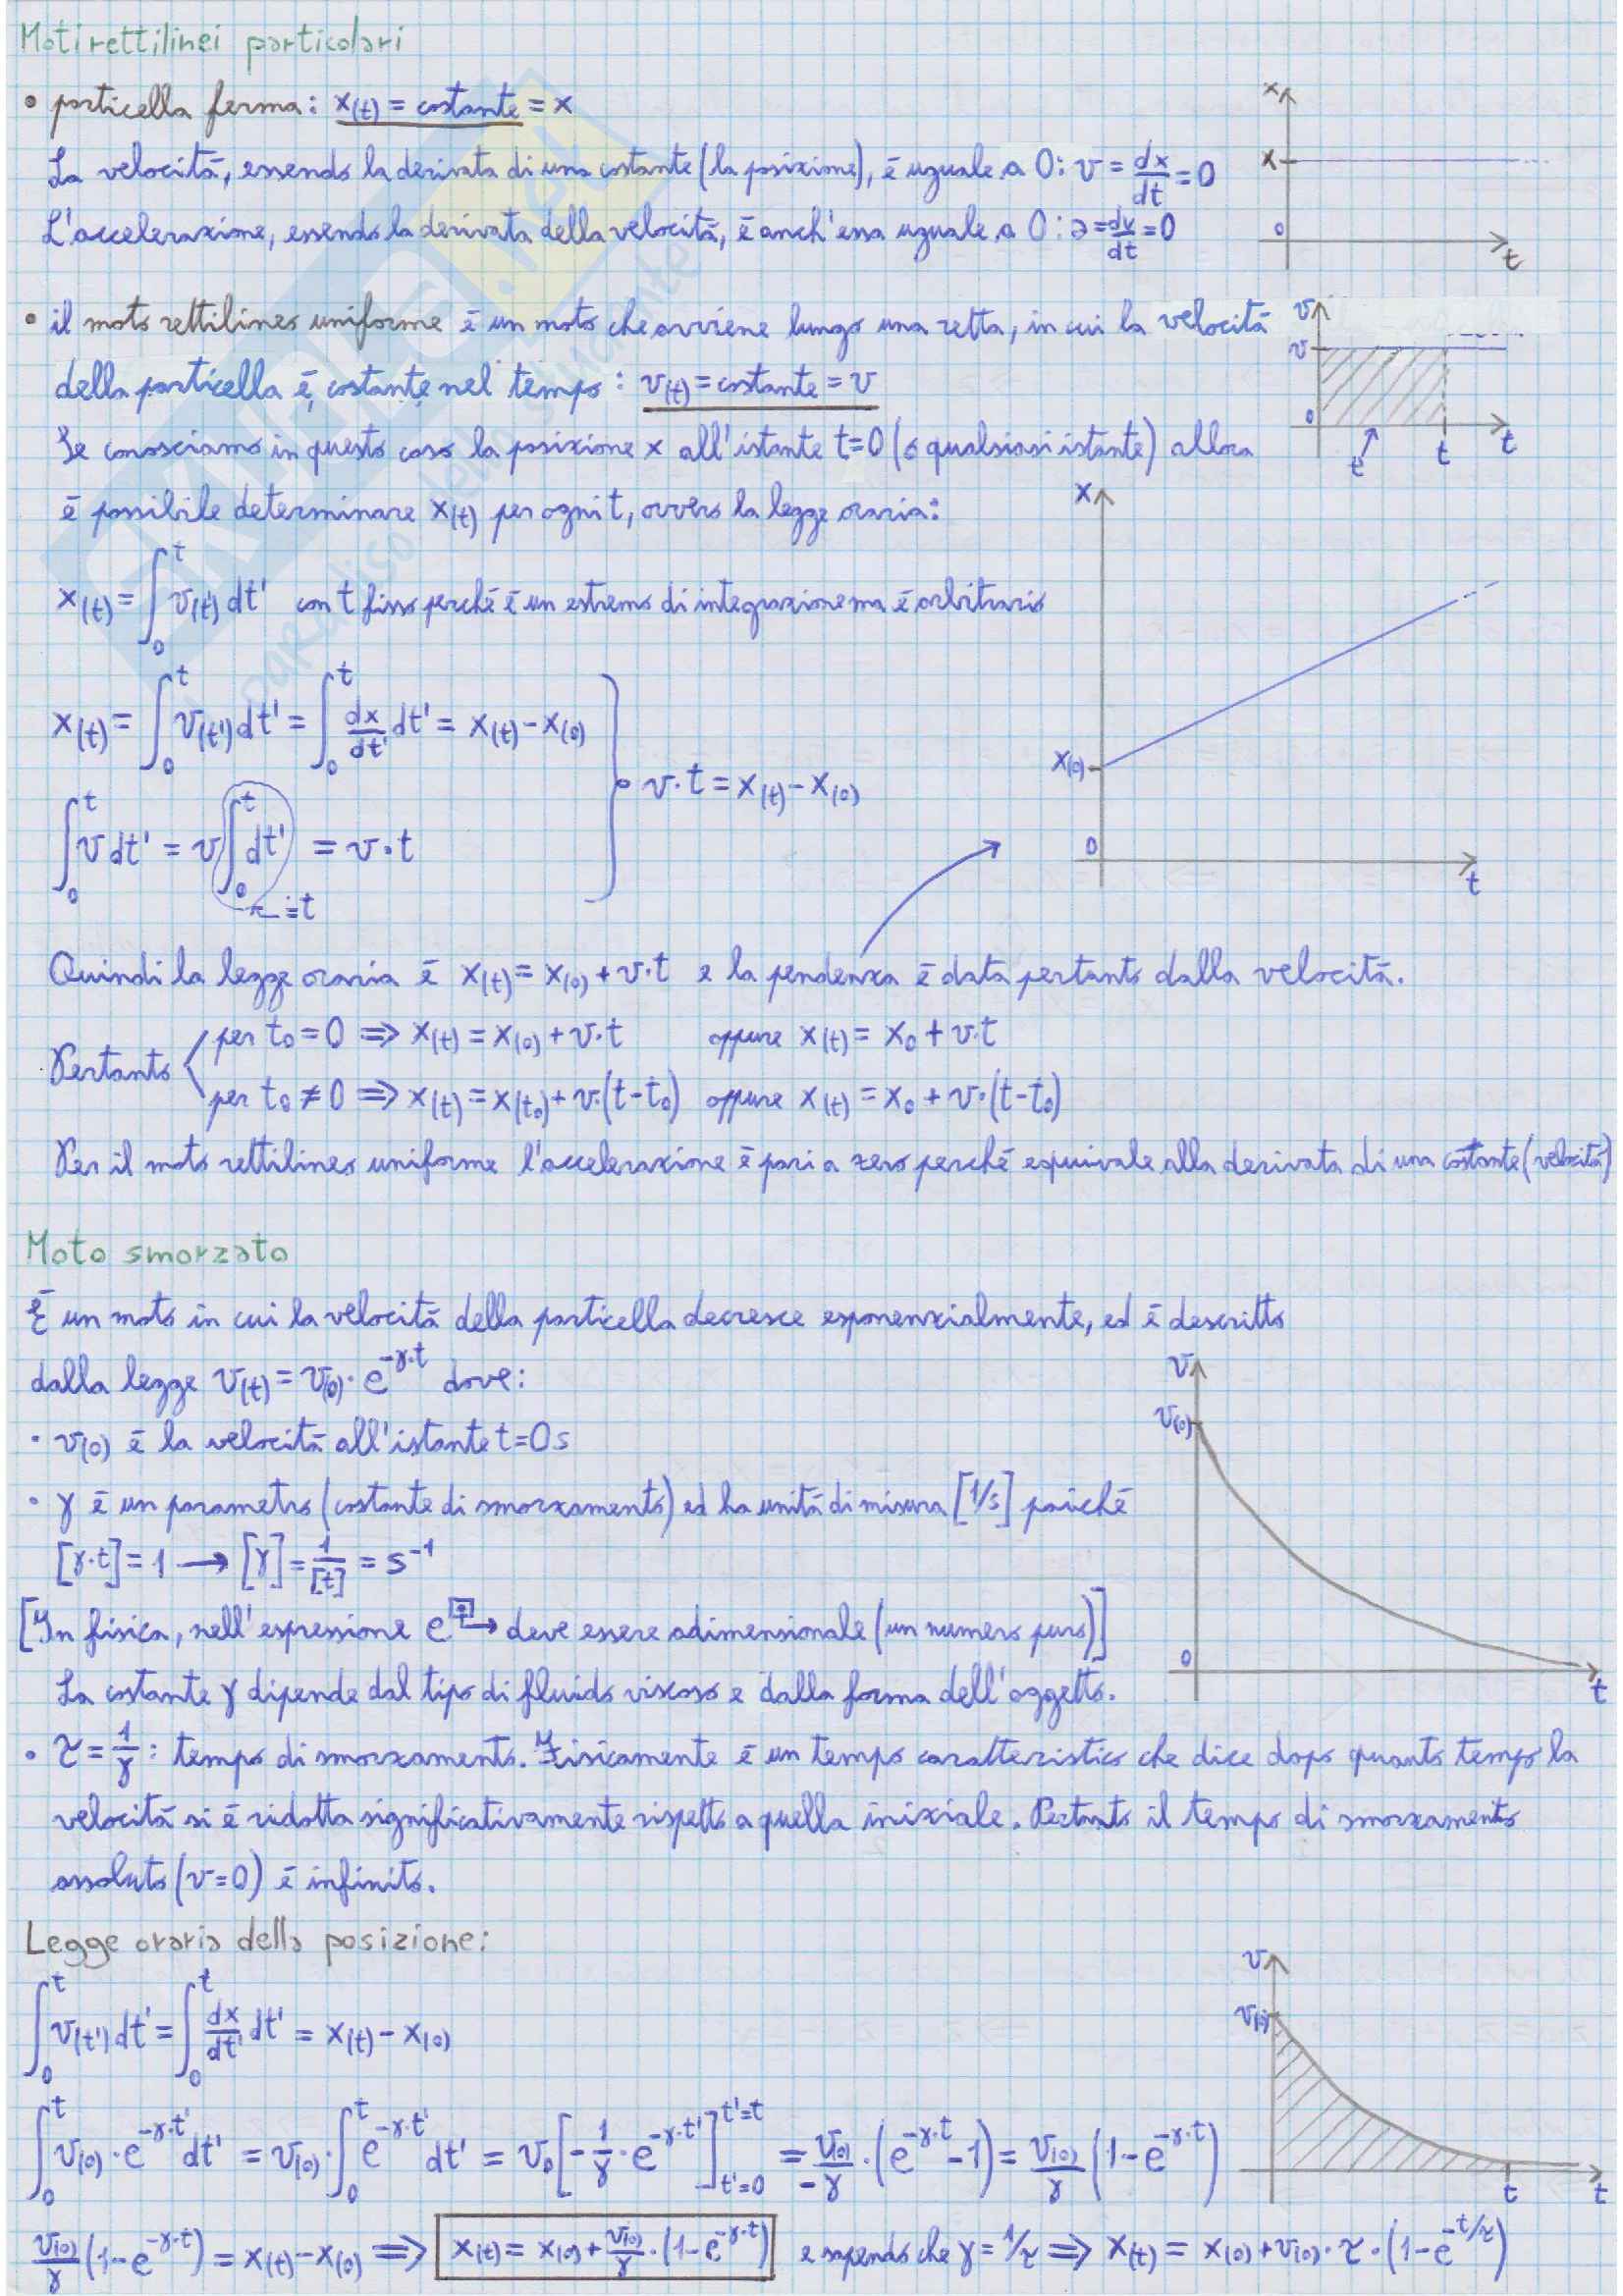 Moti rettilinei particolari
• particella ferma: x(t) = costante = x
La velocità, essendo la derivata di una costante (la posizione), è uguale a 0: v = dx/dt = 0
L'accelerazione, essendo la derivata della velocità, è anch'essa uguale a 0: a = dv/dt = 0
x
x
0
t
• il moto rettilineo uniforme è un moto che avviene lungo una retta, in cui la velocità
della particella è costante nel tempo: v(t) = costante = v
Se conosciamo in questo caso la posizione x all'istante t=0 (o qualsiasi istante) allora
è possibile determinare x(t) per ogni t, ovvero la legge oraria:
v
v
0
t'
t
t
x(t) = ∫₀ᵗ v(t) dt' con t fisso perché è un estremo di integrazione ma è arbitrario
x(t) = ∫₀ᵗ v(t') dt' = ∫₀ᵗ dx/dt' dt' = x(t) - x(0)
∫₀ᵗ v dt' = v ∫₀ᵗ dt' = v·t
= t
v·t = x(t) - x(0)
x
x(0)
0
t
Quindi la legge oraria è x(t) = x(0) + v·t e la pendenza è data pertanto dalla velocità.
Pertanto
per t₀ = 0 ⇒ x(t) = x(0) + v·t oppure x(t) = x₀ + v·t
per t₀ ≠ 0 ⇒ x(t) = x(t₀) + v·(t-t₀) oppure x(t) = x₀ + v·(t-t₀)
Per il moto rettilineo uniforme l'accelerazione è pari a zero perché equivale alla derivata di una costante (velocità)
Moto smorzato
È un moto in cui la velocità della particella decresce esponenzialmente, ed è descritto
dalla legge v(t) = v(0)· e^(-γ·t) dove:
• v(0) è la velocità all'istante t=0s
• γ è un parametro (costante di smorzamento) ed ha unità di misura [1/s] poiché
[γ·t] = 1 → [γ] = 1/[t] = s⁻¹
[In fisica, nell'espressione e^□ → deve essere adimensionale (un numero puro)]
La costante γ dipende dal tipo di fluido viscoso e dalla forma dell'oggetto.
v
v(0)
0
t
• τ = 1/γ : tempo di smorzamento. Fisicamente è un tempo caratteristico che dice dopo quanto tempo la
velocità si è ridotta significativamente rispetto a quella iniziale. Pertanto il tempo di smorzamento
assoluto (v=0) è infinito.
Legge oraria della posizione:
∫₀ᵗ v(t') dt' = ∫₀ᵗ dx/dt' dt' = x(t) - x(0)
∫₀ᵗ v(0)·e^(-γ·t') dt' = v(0)·∫₀ᵗ e^(-γ·t') dt' = v₀[-1/γ · e^(-γ·t')]_(t'=0)^(t'=t) = v(0)/-γ · (e^(-γ·t) - 1) = v(0)/γ (1 - e^(-γ·t))
v
v(0)
t
t
v(0)/γ (1 - e^(-γ·t)) = x(t) - x(0) ⇒ x(t) = x(0) + v(0)/γ · (1 - e^(-γ·t)) e sapendo che γ = 1/τ ⇒ x(t) = x(0) + v(0)·τ·(1 - e^(-t/τ))